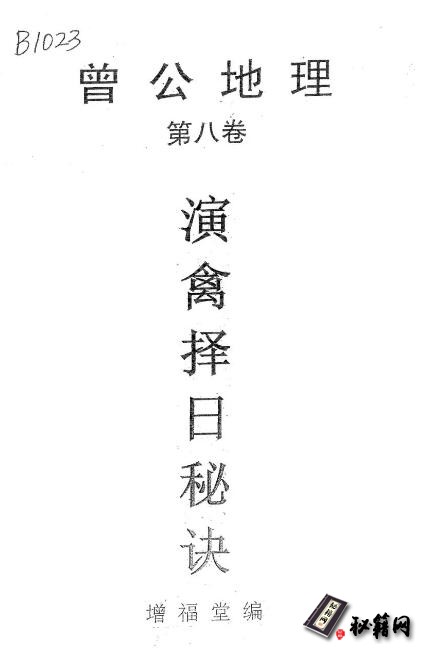 B1023
曾公地理
第八卷
演禽择日秘诀
增福堂编
秘籍网